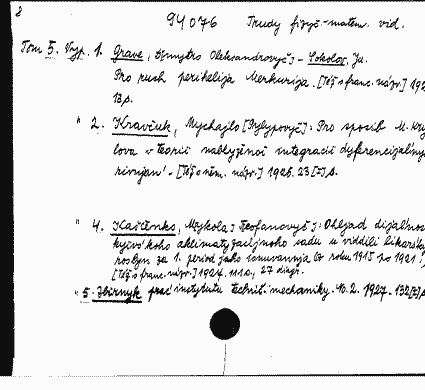 2
94076 Trudy fizyč-matem. vid.
Tom 5. Vyp. 1. Grave, Dmytro Oleksandrovyč - Sokolov, Ju.
Pro ruch perihelija Merkurija. [Též s franc. názv.] 192
13 p.
" 2. Kravčuk, Mychajlo [Pylypovyč]: Pro sposib M. Kry
lova v teorii nablyženoi integracii dyferencijaľny
rivnjań - [Též s něm. názv.] 1926. 23 [2] s.
" 4. Kaščenko, Mykola Teofanovyč: Ohljad dijaľnos
kyivśkoho aklimatyzacijnoho sadu u viddili likarśky
roslyn za 1. period jaho isnuvannja vid roku 1915 po 1921
[Též s franc. názv.] 1927. 111 s., 27 diagr.
" 5. Zbirnyk prać instytutu technič. mechaniky. No. 2. 1927. 132 [2] s.